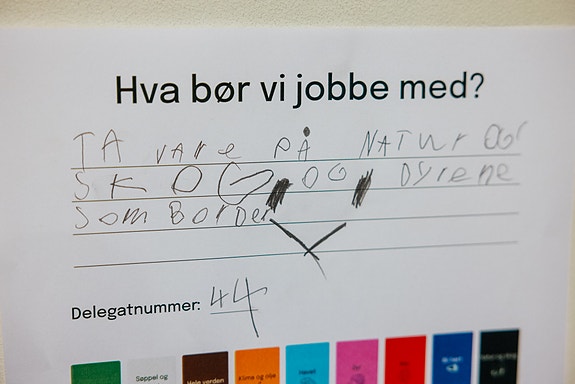 Hva bør vi jobbe med?
TA VARE PÅ NATUR OG
SKOG, OG, DYRENE
SOM BORDER
Delegatnummer: 44
Søppel og
Hele verden
Klima og olje
Havet